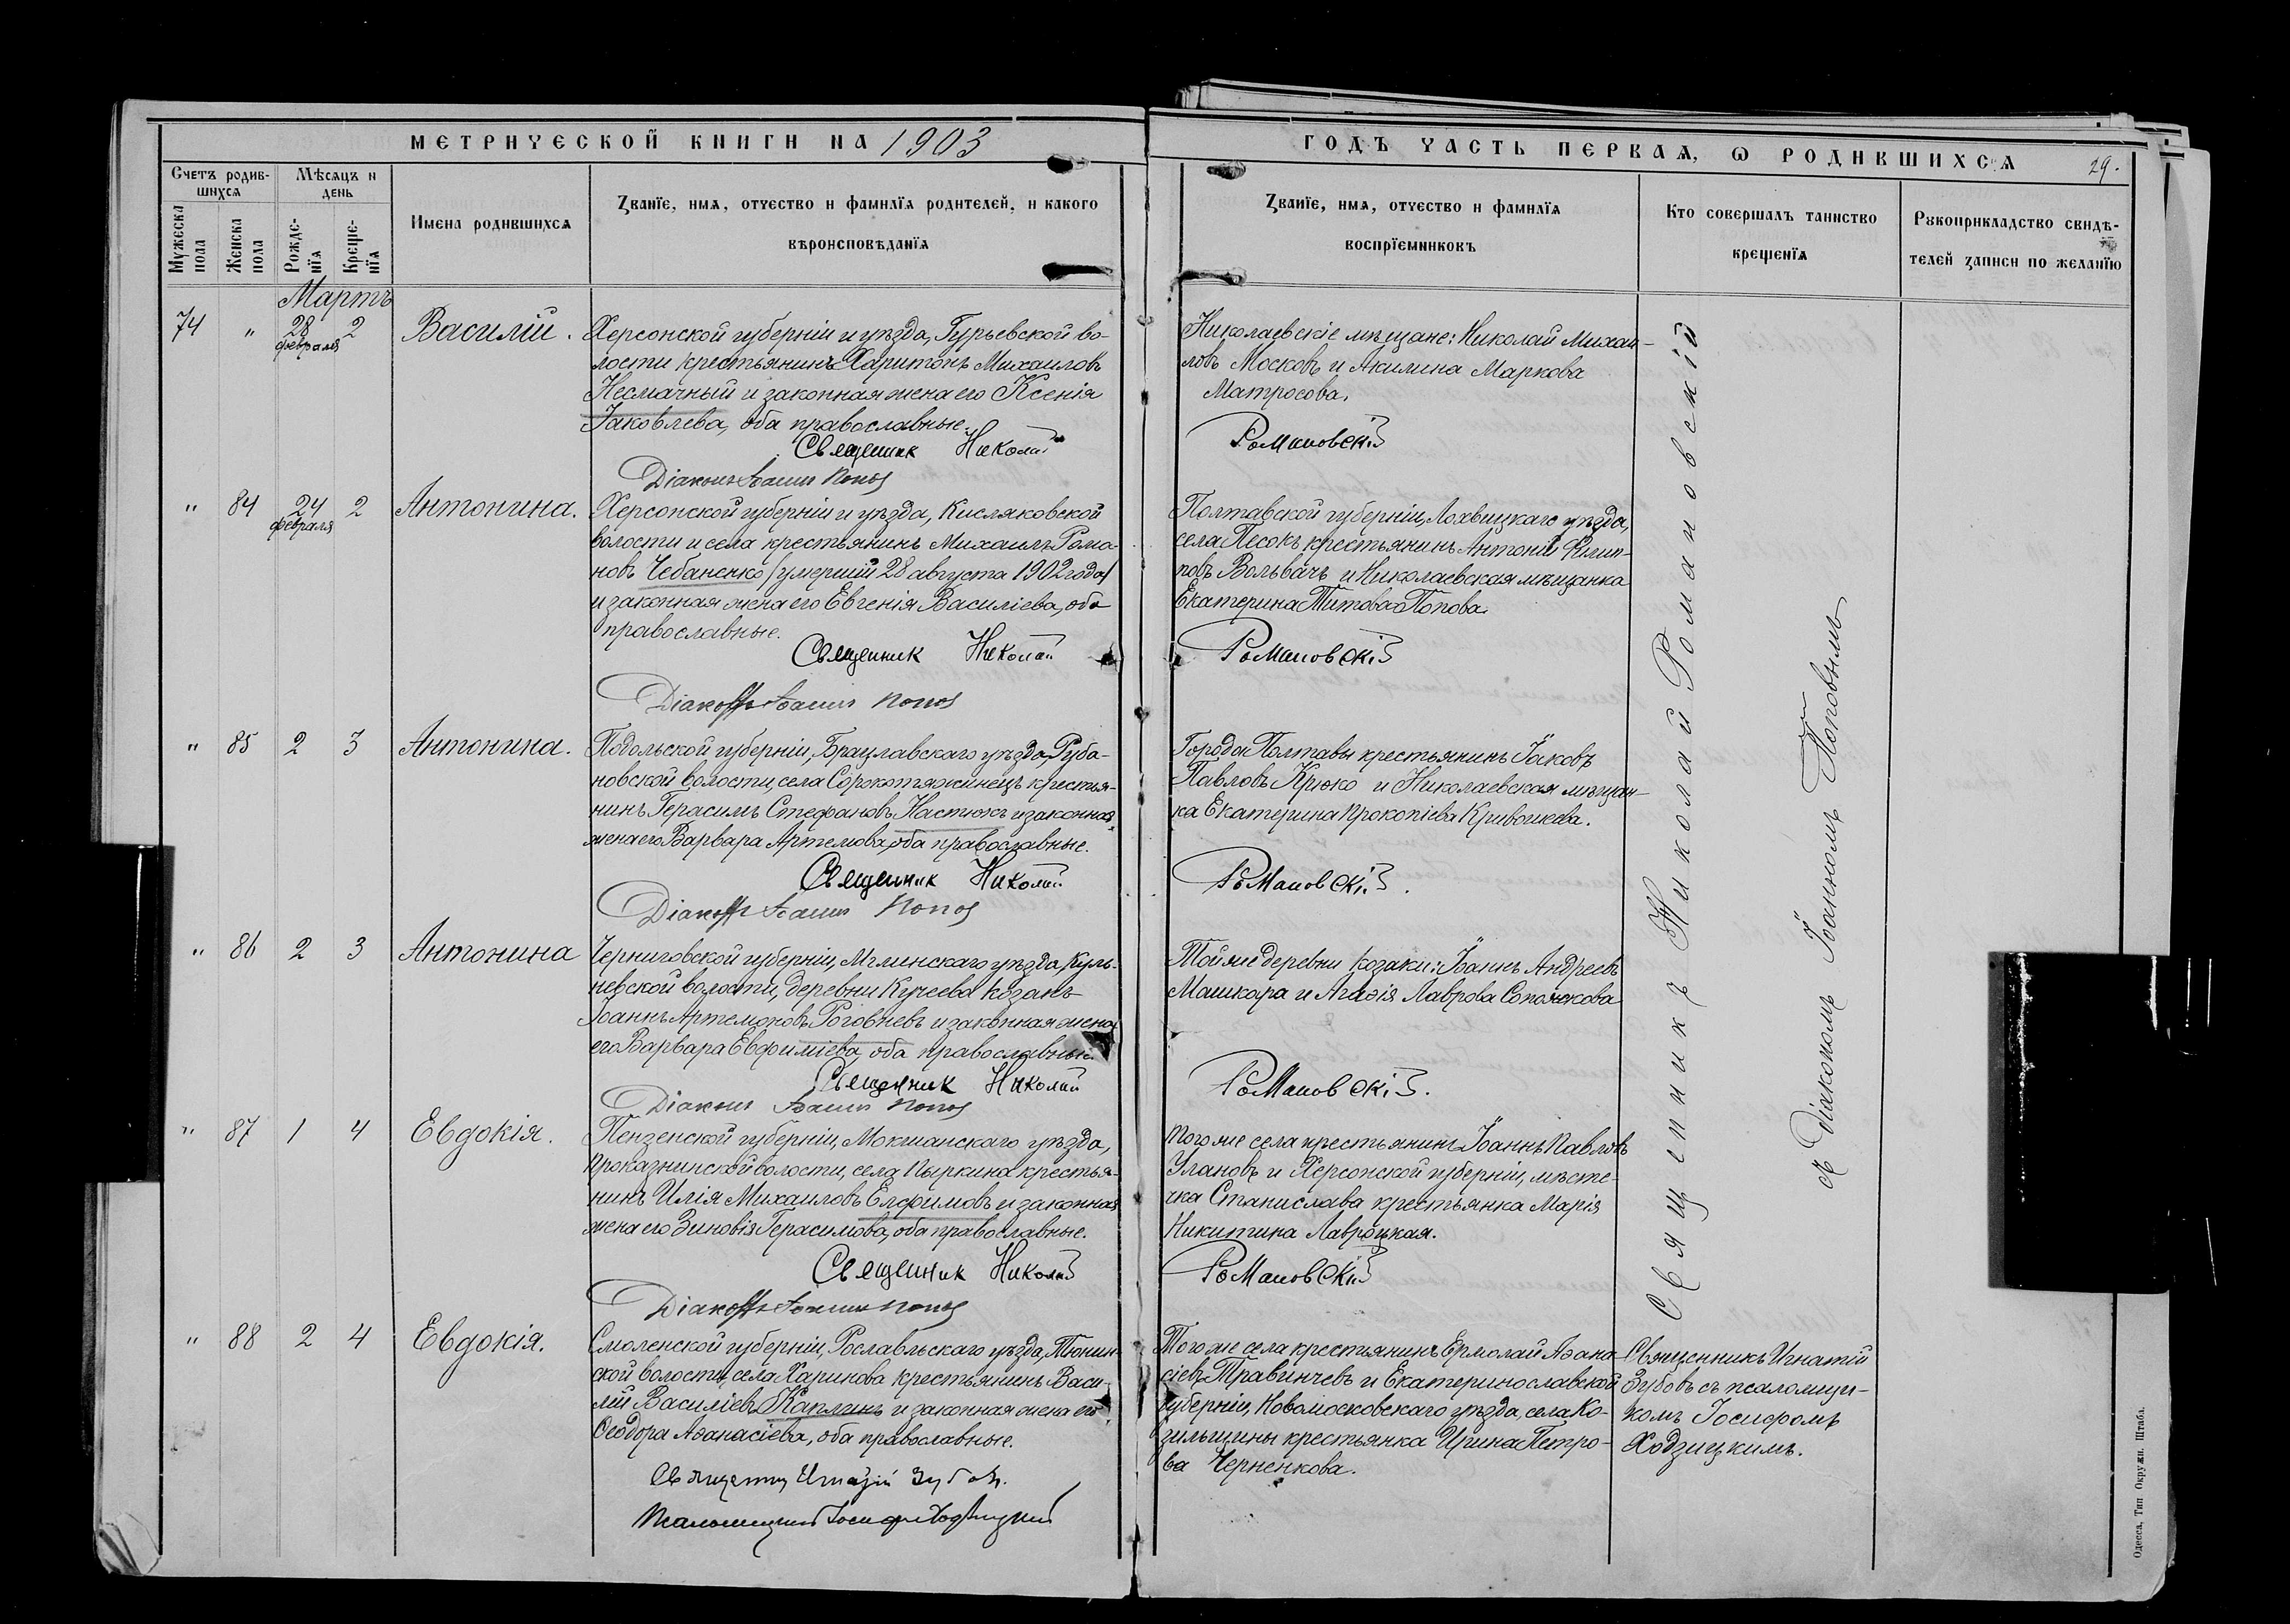 МЕТРИЧЕСКОЙ КНИГИ НА 1903
ГОДЪ ЧАСТЬ ПЕРВАЯ, Ѡ РОДИВШИХСЯ
29.
Счетъ родив-
шихся
Мѣсяцъ и
день
Мужеска
пола
Женска
пола
Рожде-
нїя
Креще-
нїя
Имена родившихся
Званїе, имя, отчество и фамилїя родителей, и какого
вѣроисповѣданїя
Званїе, имя, отчество и фамилїя
воспрїемниковъ
Кто совершалъ таинство
крещенїя
Рукоприкладство свидѣ-
телей записи по желанїю
Мартъ
74 " 28 2 Василій.
февраля
Херсонской губерніи и уѣзда, Гурьевской во-
лости крестьянинъ Харитонъ Михаиловъ
Несмачный и законная жена его Ксенія
Іаковлева, оба православные.
Священник Николай
Діаконъ Іоаннъ Попов
Николаевскіе мѣщане: Николай Михаи-
ловъ Москов и Акилина Маркова
Матросова.
Романовскій
" 84 24 2 Антонина.
февраля
Херсонской губерніи и уѣзда, Кисляковской
волости и села крестьянинъ Михаилъ Рома-
новъ Чебаненко /умершій 28 августа 1902 года/
и законная жена его Евгенія Василіева, оба
православные.
Священник Николай
Діаконъ Іоаннъ Попов
Полтавской губерніи, Лохвицкаго уѣзда,
села Песокъ крестьянинъ Антоній Филип-
повъ Вольвачъ и Николаевская мѣщанка
Екатерина Титова Попова.
Романовскій
" 85 2 3 Антонина.
Подольской губерніи, Брацлавскаго уѣзда, Руба-
новской волости, села Сорокотяжинецъ крестья-
нинъ Герасимъ Стефановъ Настюкъ и законная
жена его Варвара Артемова, оба православные.
Священник Николай
Діаконъ Іоаннъ Попов
Города Полтавы крестьянинъ Іаковъ
Павловъ Крюко и Николаевская мѣщан-
ка Екатерина Прокопіева Кривошеева.
Романовскій.
" 86 2 3 Антонина
Черниговской губерніи, Мглинскаго уѣзда, Куль-
невской волости, деревни Кучеева козакъ
Іоаннъ Артемоновъ Роговцевъ и законная жена
его Варвара Евфиміева, оба православные.
Священник Николай
Діаконъ Іоаннъ Попов
Той же деревни козаки: Іоаннъ Андреевъ
Машкара и Агафія Лаврова
Романовскій.
" 87 1 4 Евдокія.
Пензенской губерніи, Мокшанскаго уѣзда,
Проказнинской волости, села Пыркина крестья-
нинъ Илія Михаиловъ Елфимовъ и законная
жена его Зиновія Герасимова, оба православные.
Священник Николай
Діаконъ Іоаннъ Попов
Того же села крестьянинъ Іоаннъ Павловъ
Улановъ и Херсонской губерніи, мѣсте-
чка Станислава крестьянка Марія
Никитина Лавроцкая.
Романовскій
" 88 2 4 Евдокія.
Смоленской губерніи, Рославльскаго уѣзда, Тюнин-
ской волости, села Харинова крестьянинъ Васи-
лій Василіевъ Каплинъ и законная жена его
Ѳеодора Аѳанасіева, оба православные.
Священник Игнатій Зубовъ.
Псаломщикъ Іосифъ Ходзицкій
Того же села крестьянинъ Ермолай Аѳана-
сіевъ Травинчевъ и Екатеринославской
губерніи, Новомосковскаго уѣзда, села Ко-
зильщины крестьянка Ирина Петро-
ва Черненкова.
Священникъ Николай Романовскій
съ Діакономъ Іоанномъ Поповымъ
Священникъ Игнатій
Зубовъ съ псаломщи-
комъ Іосифомъ
Ходзицкимъ.
Одесса, Тип Окружн. Штаба.